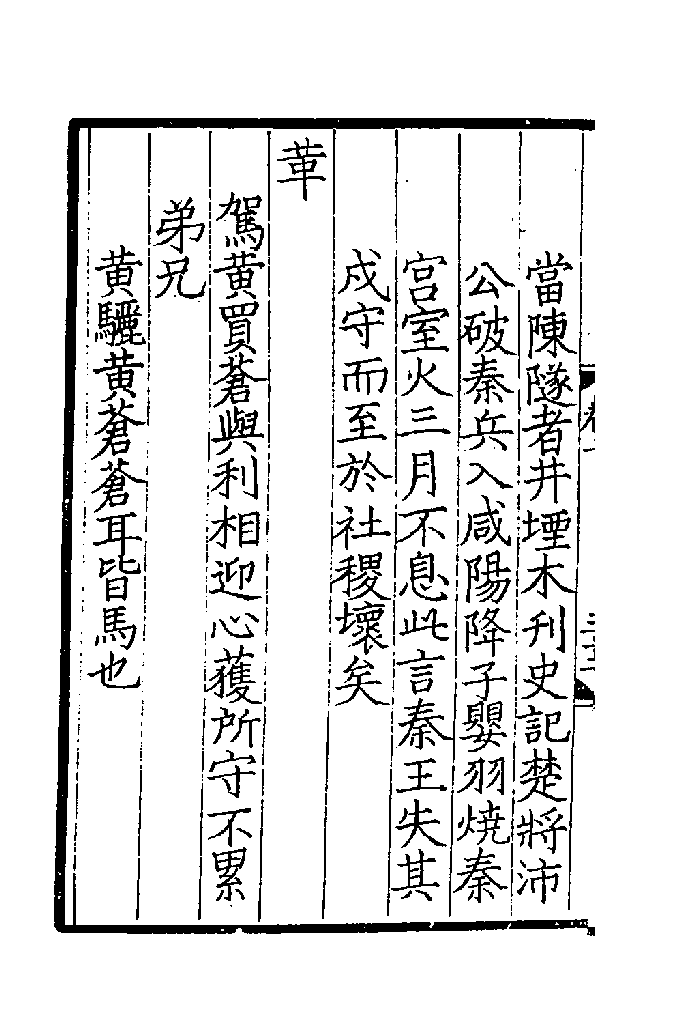 當陳隧者井堙木刋史記楚將沛
公破秦兵入咸陽降子嬰羽燒秦
宫室火三月不息此言秦王失其
戍守而至於社稷壞矣
革
駕黄買蒼與利相迎心獲所守不累
弟兄
黄驪黄蒼蒼耳皆馬也